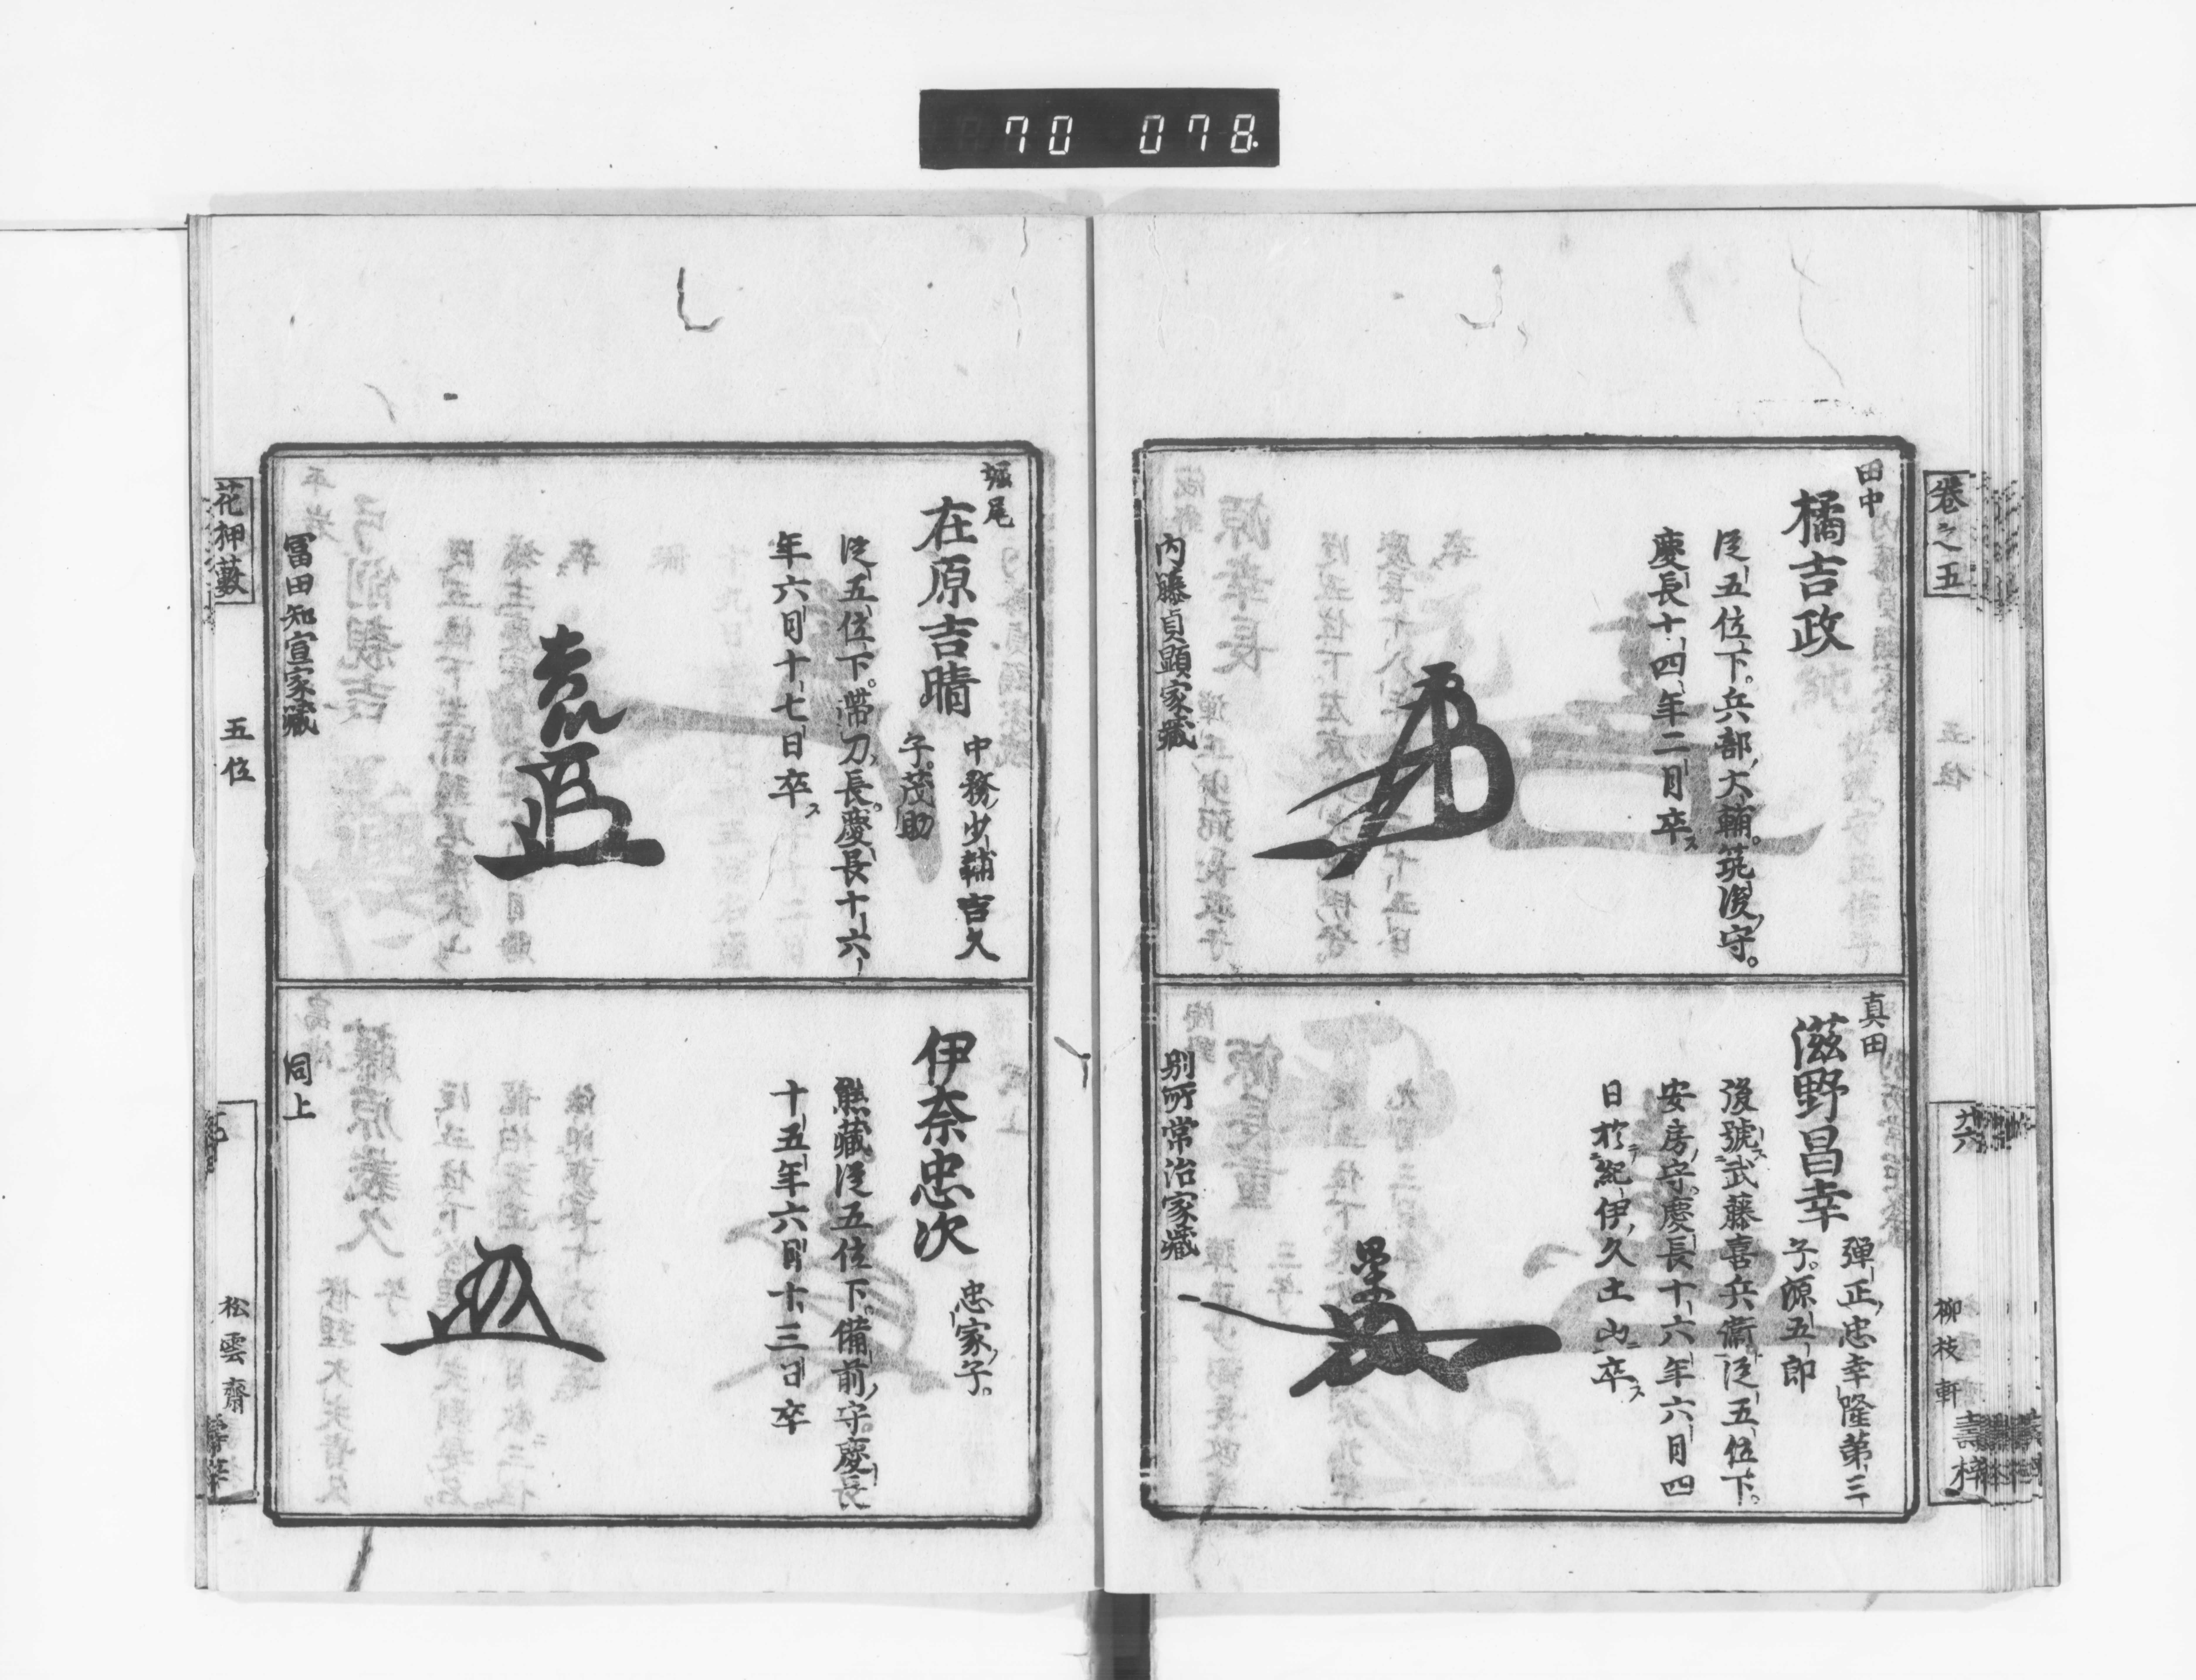 70 078
卷之五
五位
廿六
柳枝軒
壽梓
田中
橘吉政
従五位下。兵部大輔。筑後守。
慶長十四年二月卒ス
内藤貞顕家藏
真田
滋野昌幸
弾正忠幸隆第三
子。源五郎
後號武藤喜兵衛従五位下。
安房守。慶長十六年六月四
日於紀伊久土山卒ス
別所常治家藏
堀尾
在原吉晴
中務少輔吉久
子。茂助
従五位下。帯刀長。慶長十六
年六月十七日卒ス
冨田知宣家藏
伊奈忠次
忠家子。
熊藏従五位下。備前守。慶長
十五年六月十三日卒
同上
花押藪
五位
松雲齋